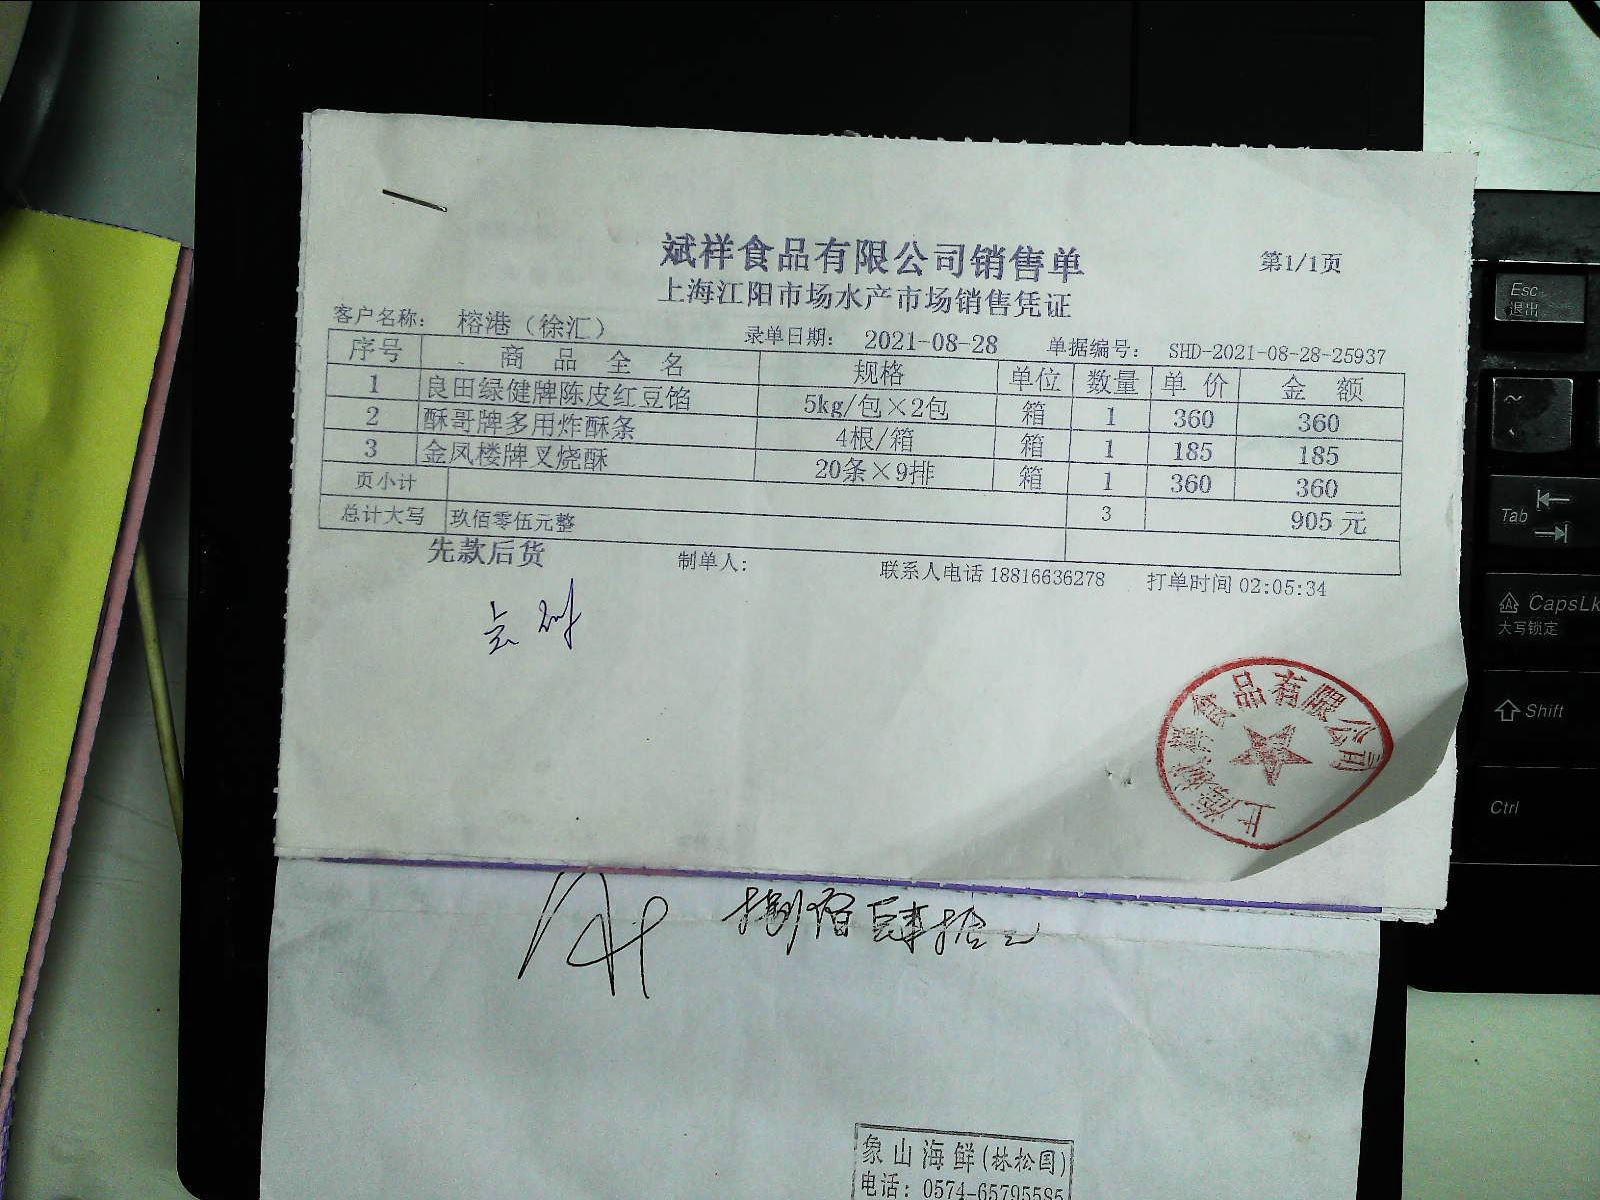 斌祥食品有限公司销售单
第1/1页
上海江阳市场水产市场销售凭证
客户名称： 榕港（徐汇） 录单日期： 2021-08-28 单据编号： SHD-2021-08-28-25937
序号 商品全名 规格 单位 数量 单价 金额
1 良田绿健牌陈皮红豆馅 5kg/包×2包 箱 1 360 360
2 酥哥牌多用炸酥条 4根/箱 箱 1 185 185
3 金凤楼牌叉烧酥 20条×9排 箱 1 360 360
页小计 3 905 元
总计大写 玖佰零伍元整
先款后货 制单人： 联系人电话 18816636278 打单时间 02:05:34
上海斌祥食品有限公司
捌佰肆拾元
象山海鲜(林松国)
电话：0574-65795585
Esc
退出
~
Tab
CapsLk
大写锁定
Shift
Ctrl